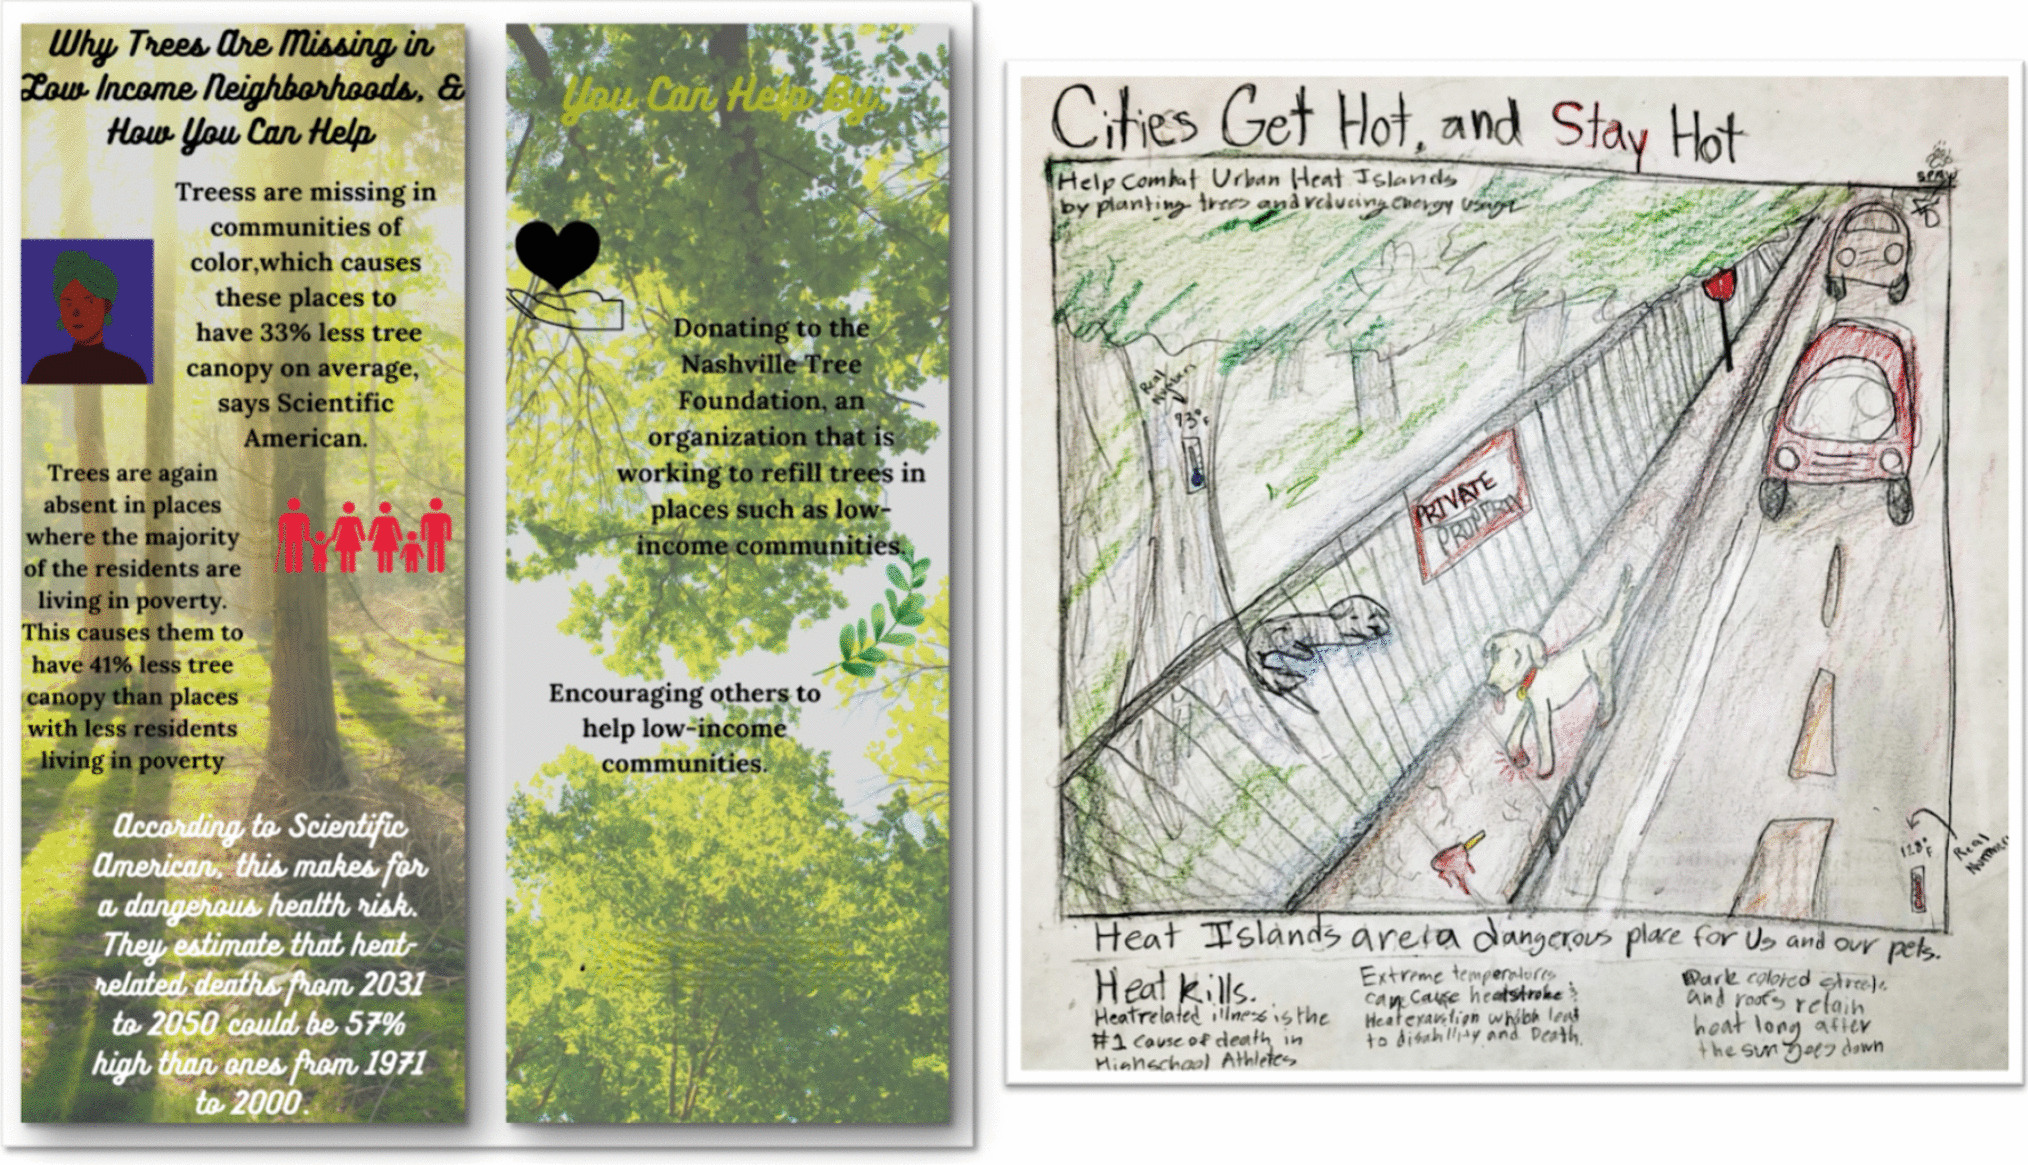 Why Trees Are Missing in
Low Income Neighborhoods, &
How You Can Help
Treess are missing in
communities of
color,which causes
these places to
have 33% less tree
canopy on average,
says Scientific
American.
Trees are again
absent in places
where the majority
of the residents are
living in poverty.
This causes them to
have 41% less tree
canopy than places
with less residents
living in poverty
According to Scientific
American, this makes for
a dangerous health risk.
They estimate that heat-
related deaths from 2031
to 2050 could be 57%
high than ones from 1971
to 2000.
You Can Help By:
Donating to the
Nashville Tree
Foundation, an
organization that is
working to refill trees in
places such as low-
income communities.
Encouraging others to
help low-income
communities.
Cities Get Hot, and Stay Hot
Help Combat Urban Heat Islands
by planting trees and reducing energy usage
Real
Numbers
93°F
PRIVATE
PROPERTY
128°F
Real
Numbers
Heat Islands are a dangerous place for us and our pets.
Heat kills.
Heatrelated illness is the
#1 cause of death in
Highschool Athletes
Extreme temperatures
can cause heatstroke &
Heat exaustion which lead
to disability and Death.
Dark colored streets
and roofs retain
heat long after
the sun goes down